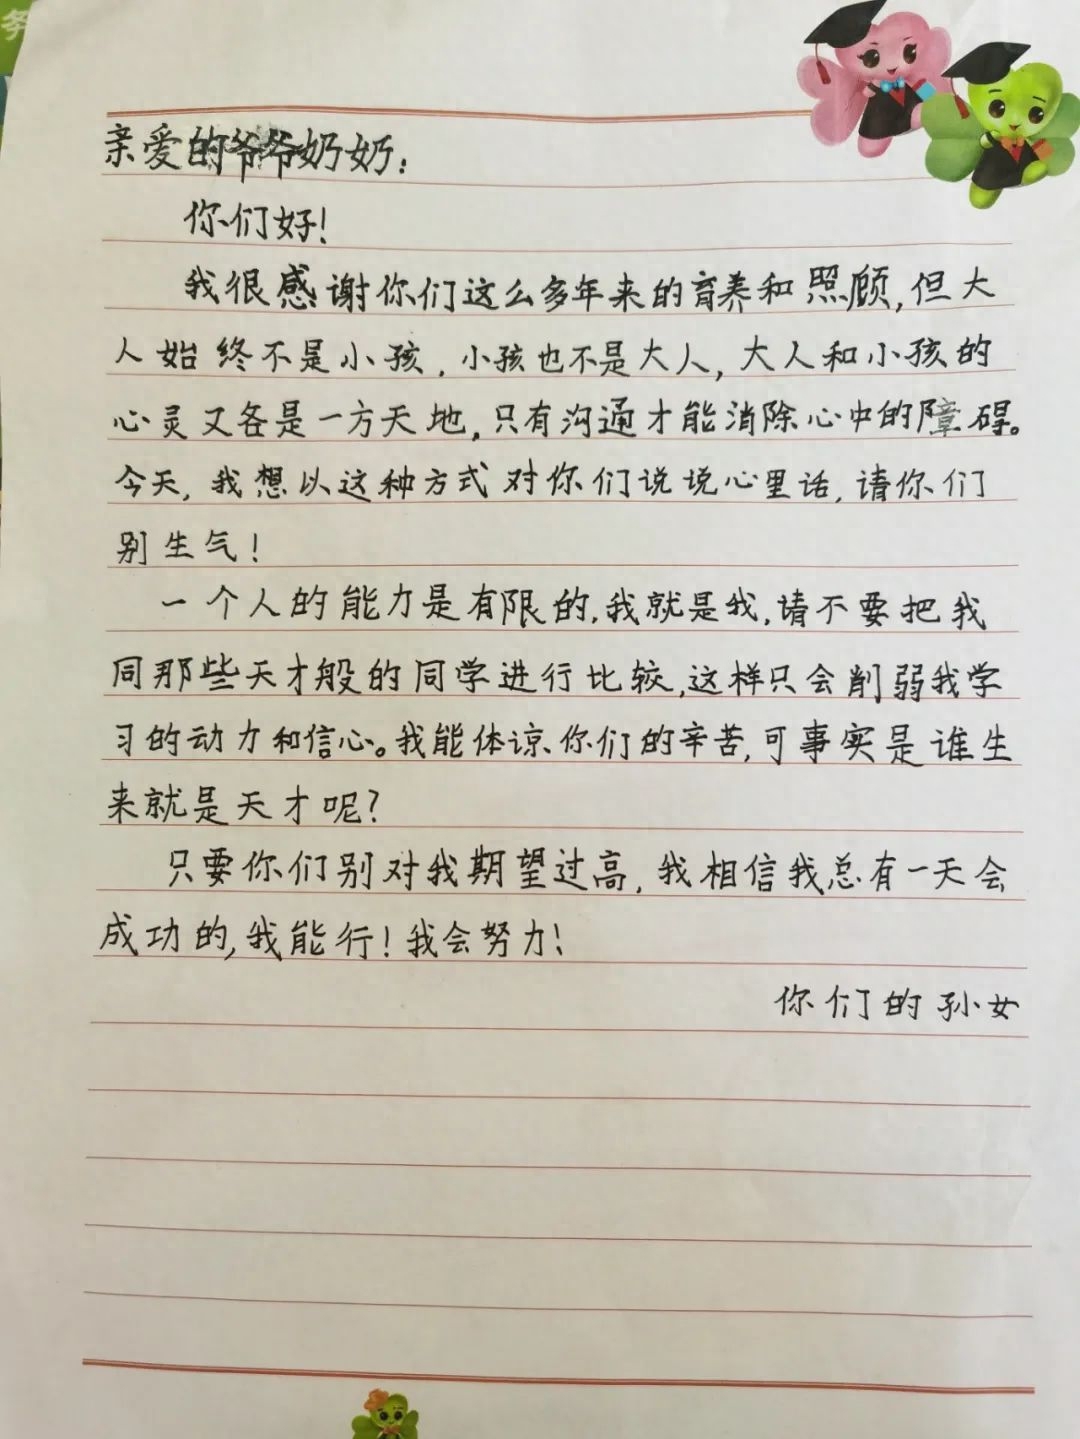 务
亲爱的爷爷奶奶:
你们好!
我很感谢你们这么多年来的育养和照顾,但大
人始终不是小孩,小孩也不是大人,大人和小孩的
心灵又各是一方天地,只有沟通才能消除心中的障碍。
今天,我想以这种方式对你们说说心里话,请你们
别生气!
一个人的能力是有限的,我就是我,请不要把我
同那些天才般的同学进行比较,这样只会削弱我学
习的动力和信心。我能体谅你们的辛苦,可事实是谁生
来就是天才呢?
只要你们别对我期望过高,我相信我总有一天会
成功的,我能行!我会努力!
你们的孙女